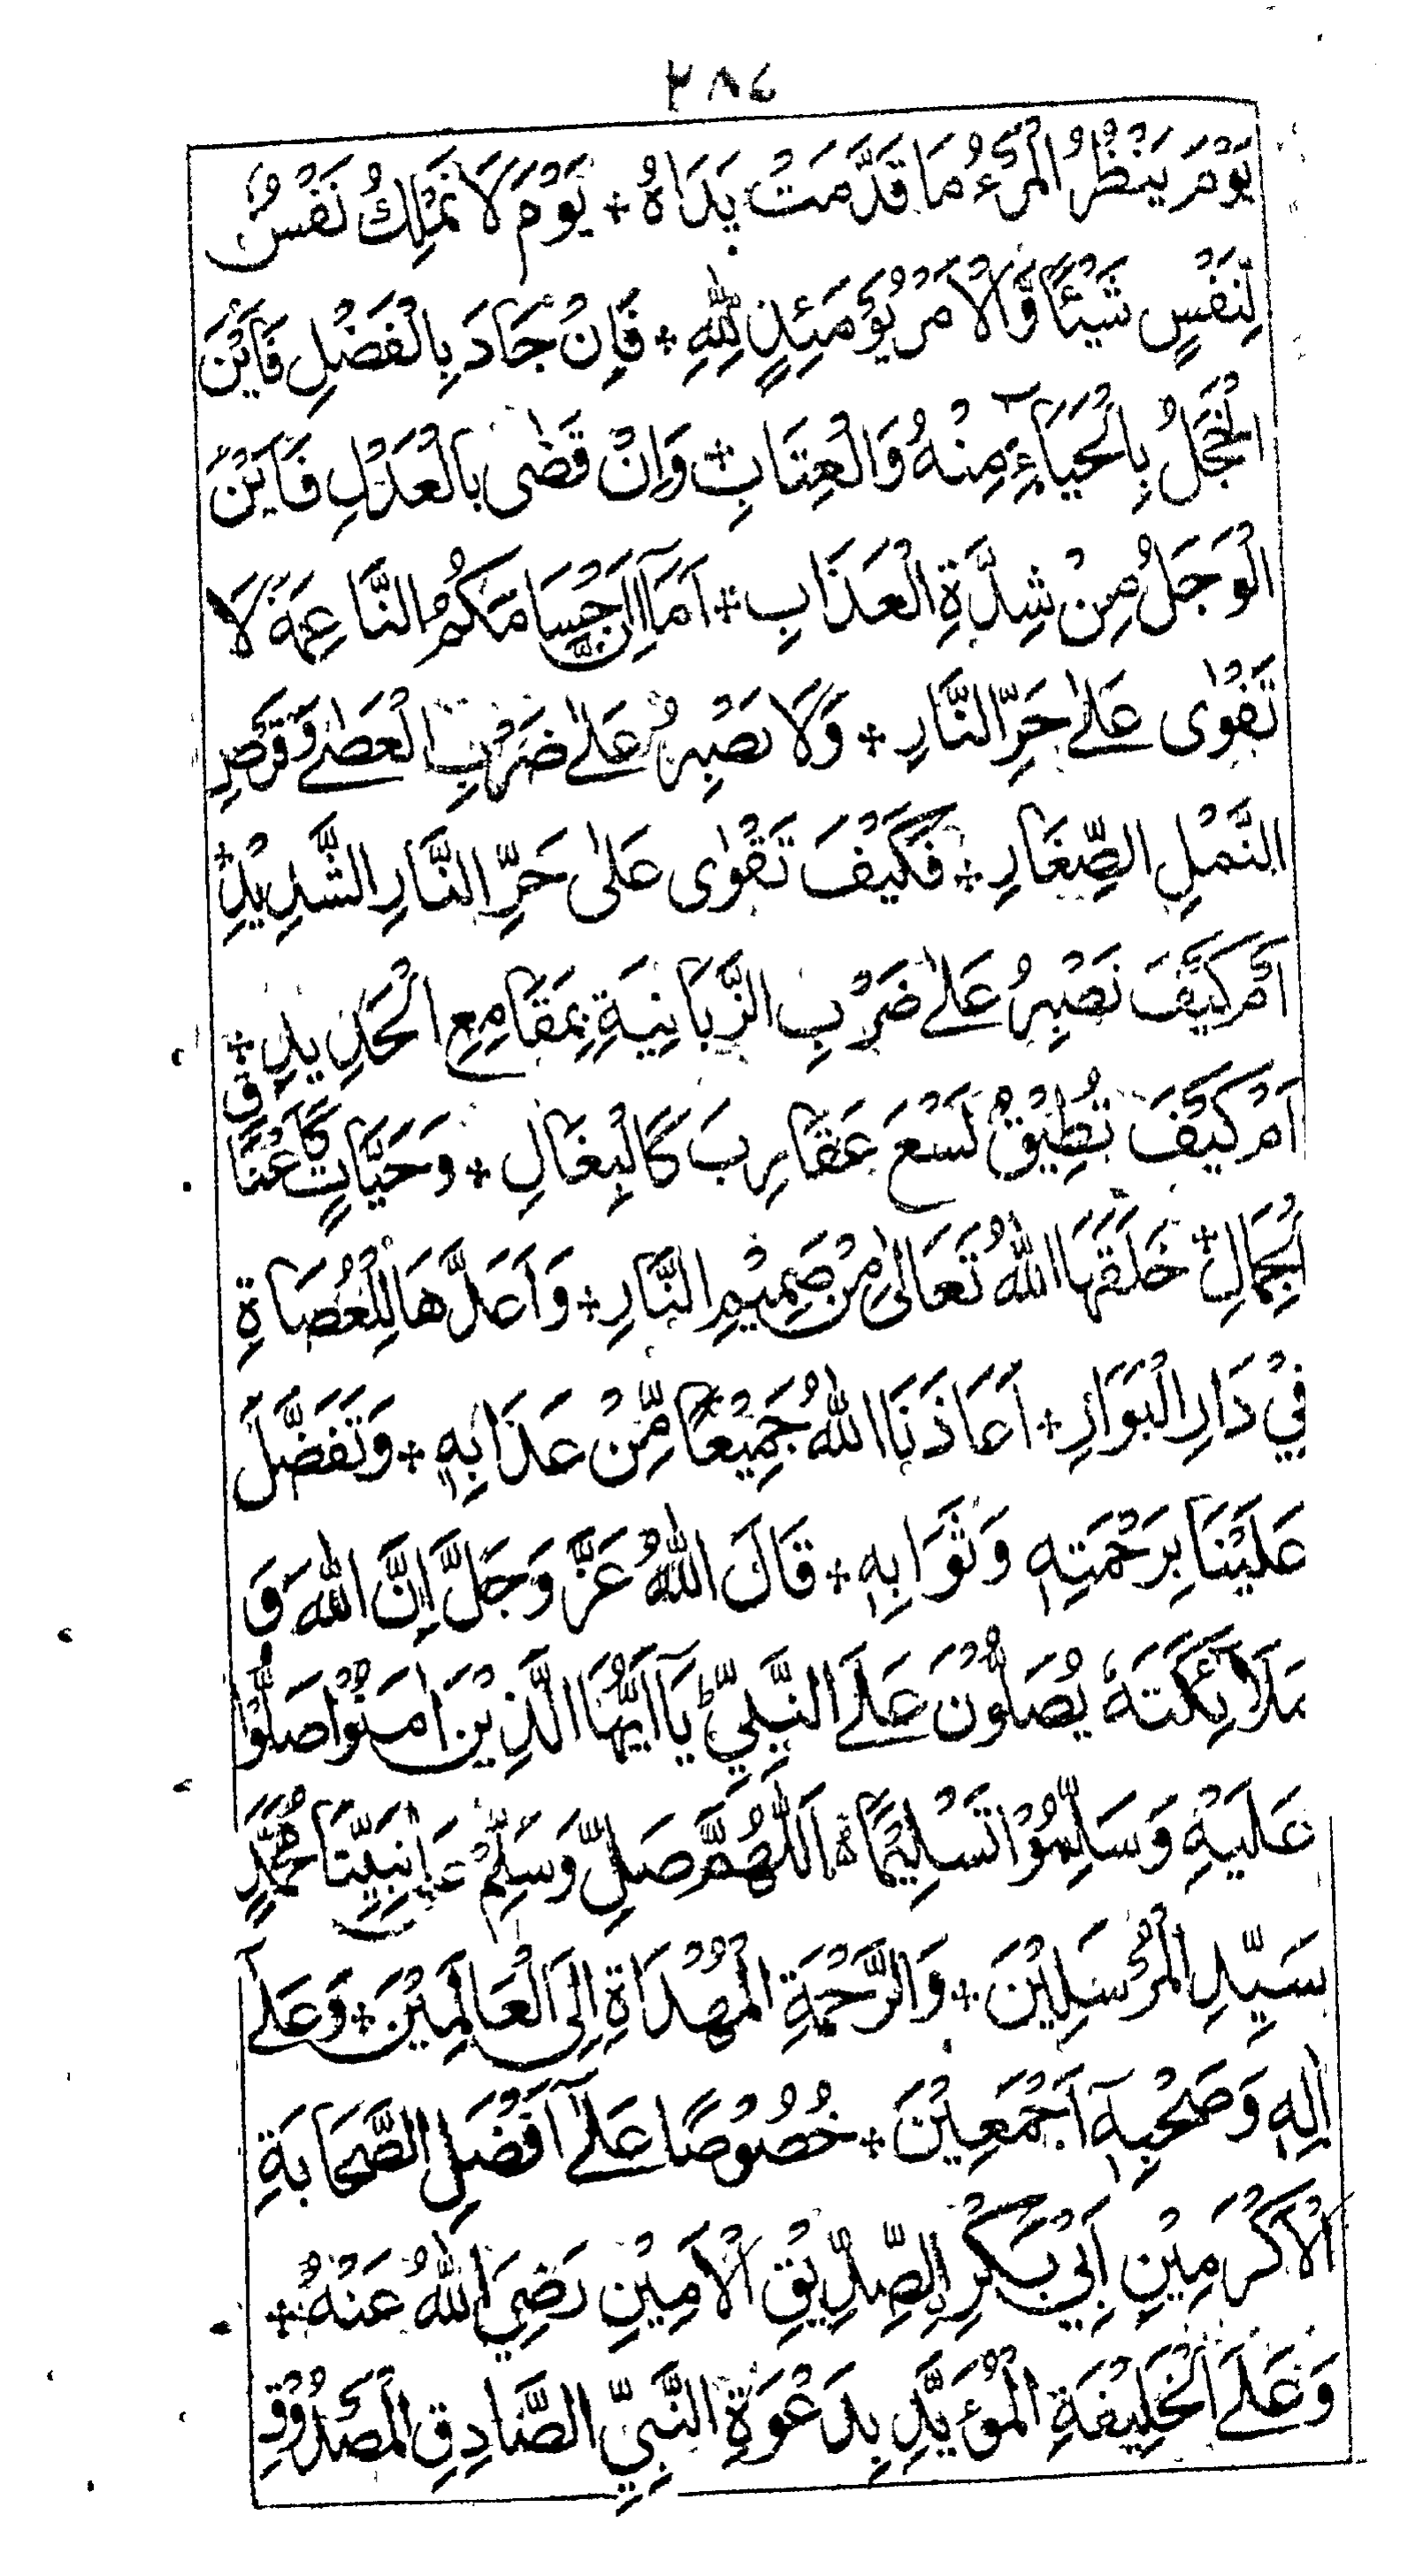 ٢٨٤
يَوْمَ يَنْظُرُ الْمَرْءُ مَا قَدَّمَتْ يَدَاهُ + يَوْمَ لَا تَمْلِكُ نَفْسٌ
لِّنَفْسٍ شَيْئًا وَّالْاَمْرُ يَوْمَئِذٍ لِلّٰهِ + فَاِنْ جَادَ بِالْفَضْلِ فَاَيْنَ
الْخَجَلُ بِالْحَيَآءِ مِنْهُ وَالْعِتَابِ + وَاِنْ قَضٰى بِالْعَدْلِ فَاَيْنَ
الْوَجَلُ مِنْ شِدَّةِ الْعَذَابِ + اَمَآ اِنَّ اَجْسَامَكُمُ النَّاعِمَةَ لَا
تَقْوٰى عَلٰى حَرِّ النَّارِ + وَلَا تَصْبِرُ عَلٰى ضَرْبِ الْعَصٰى وَقَرْصِ
النَّمْلِ الصِّغَارِ + فَكَيْفَ تَقْوٰى عَلٰى حَرِّ النَّارِ الشَّدِيْدِ +
اَمْ كَيْفَ تَصْبِرُ عَلٰى ضَرْبِ الزَّبَانِيَةِ بِمَقَامِعِ الْحَدِيْدِ +
اَمْ كَيْفَ تُطِيْقُ لَسْعَ عَقَارِبَ كَالْبِغَالِ + وَحَيَّاتٍ كَاَعْنَاقِ
الْجِمَالِ + خَلَقَهَا اللّٰهُ تَعَالٰى مِنْ صَمِيْمِ النَّارِ + وَاَعَدَّهَا لِلْعُصَاةِ
فِيْ دَارِ الْبَوَارِ + اَعَاذَنَا اللّٰهُ جَمِيْعًا مِّنْ عَذَابِهٖ + وَتَفَضَّلَ
عَلَيْنَا بِرَحْمَتِهٖ وَثَوَابِهٖ + قَالَ اللّٰهُ عَزَّ وَجَلَّ اِنَّ اللّٰهَ وَ
مَلَآئِكَتَهٗ يُصَلُّوْنَ عَلَى النَّبِيِّ ط يَآ اَيُّهَا الَّذِيْنَ اٰمَنُوْا صَلُّوْا
عَلَيْهِ وَسَلِّمُوْا تَسْلِيْمًا ۃ اَللّٰهُمَّ صَلِّ وَسَلِّمْ عَلٰى نَبِيِّنَا مُحَمَّدٍ
سَيِّدِ الْمُرْسَلِيْنَ + وَالرَّحْمَةِ الْمُهْدَاةِ اِلَى الْعَالَمِيْنَ + وَعَلٰٓى
اٰلِهٖ وَصَحْبِهٖٓ اَجْمَعِيْنَ + خُصُوْصًا عَلٰٓى اَفْضَلِ الصَّحَابَةِ
الْاَكْرَمِيْنِ اَبِيْ بَكْرِ الصِّدِّيْقِ الْاَمِيْنِ رَضِيَ اللّٰهُ عَنْهُ +
وَعَلَى الْخَلِيْفَةِ الْمُؤَيَّدِ بِدَعْوَةِ النَّبِيِّ الصَّادِقِ الْمَصْدُوْقِ